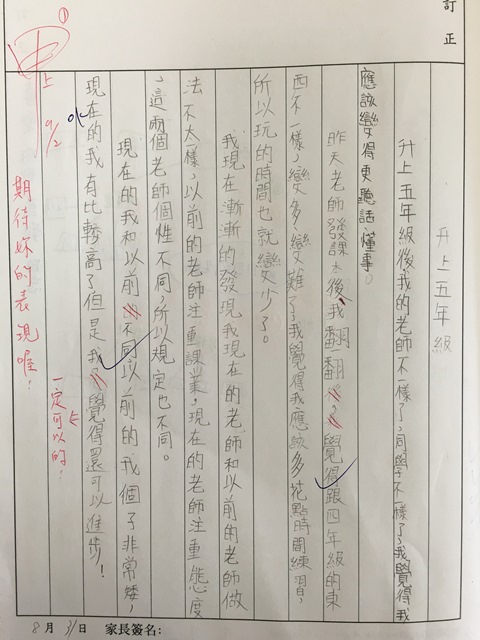 訂正
升上五年級
升上五年級後,我的老師不一樣了,同學不一樣了,我覺得我
應該變得更聽話、懂事。
昨天老師發課本後,我翻翻,覺得跟四年級的東
西不一樣,變多、變難了,我覺得我應該多花點時間練習,
所以玩的時間也就變少了。
我現在漸漸的發現我現在的老師和以前的老師做
法不太一樣,以前的老師注重課業,現在的老師注重態度
,這兩個老師個性不同,所以規定也不同。
現在的我和以前不同,以前的我個子非常矮,
現在的我有比較高了,但是我覺得還可以進步!
①
甲上
9/2
一定可以的!
期待妳的表現喔!
8月31日 家長簽名: